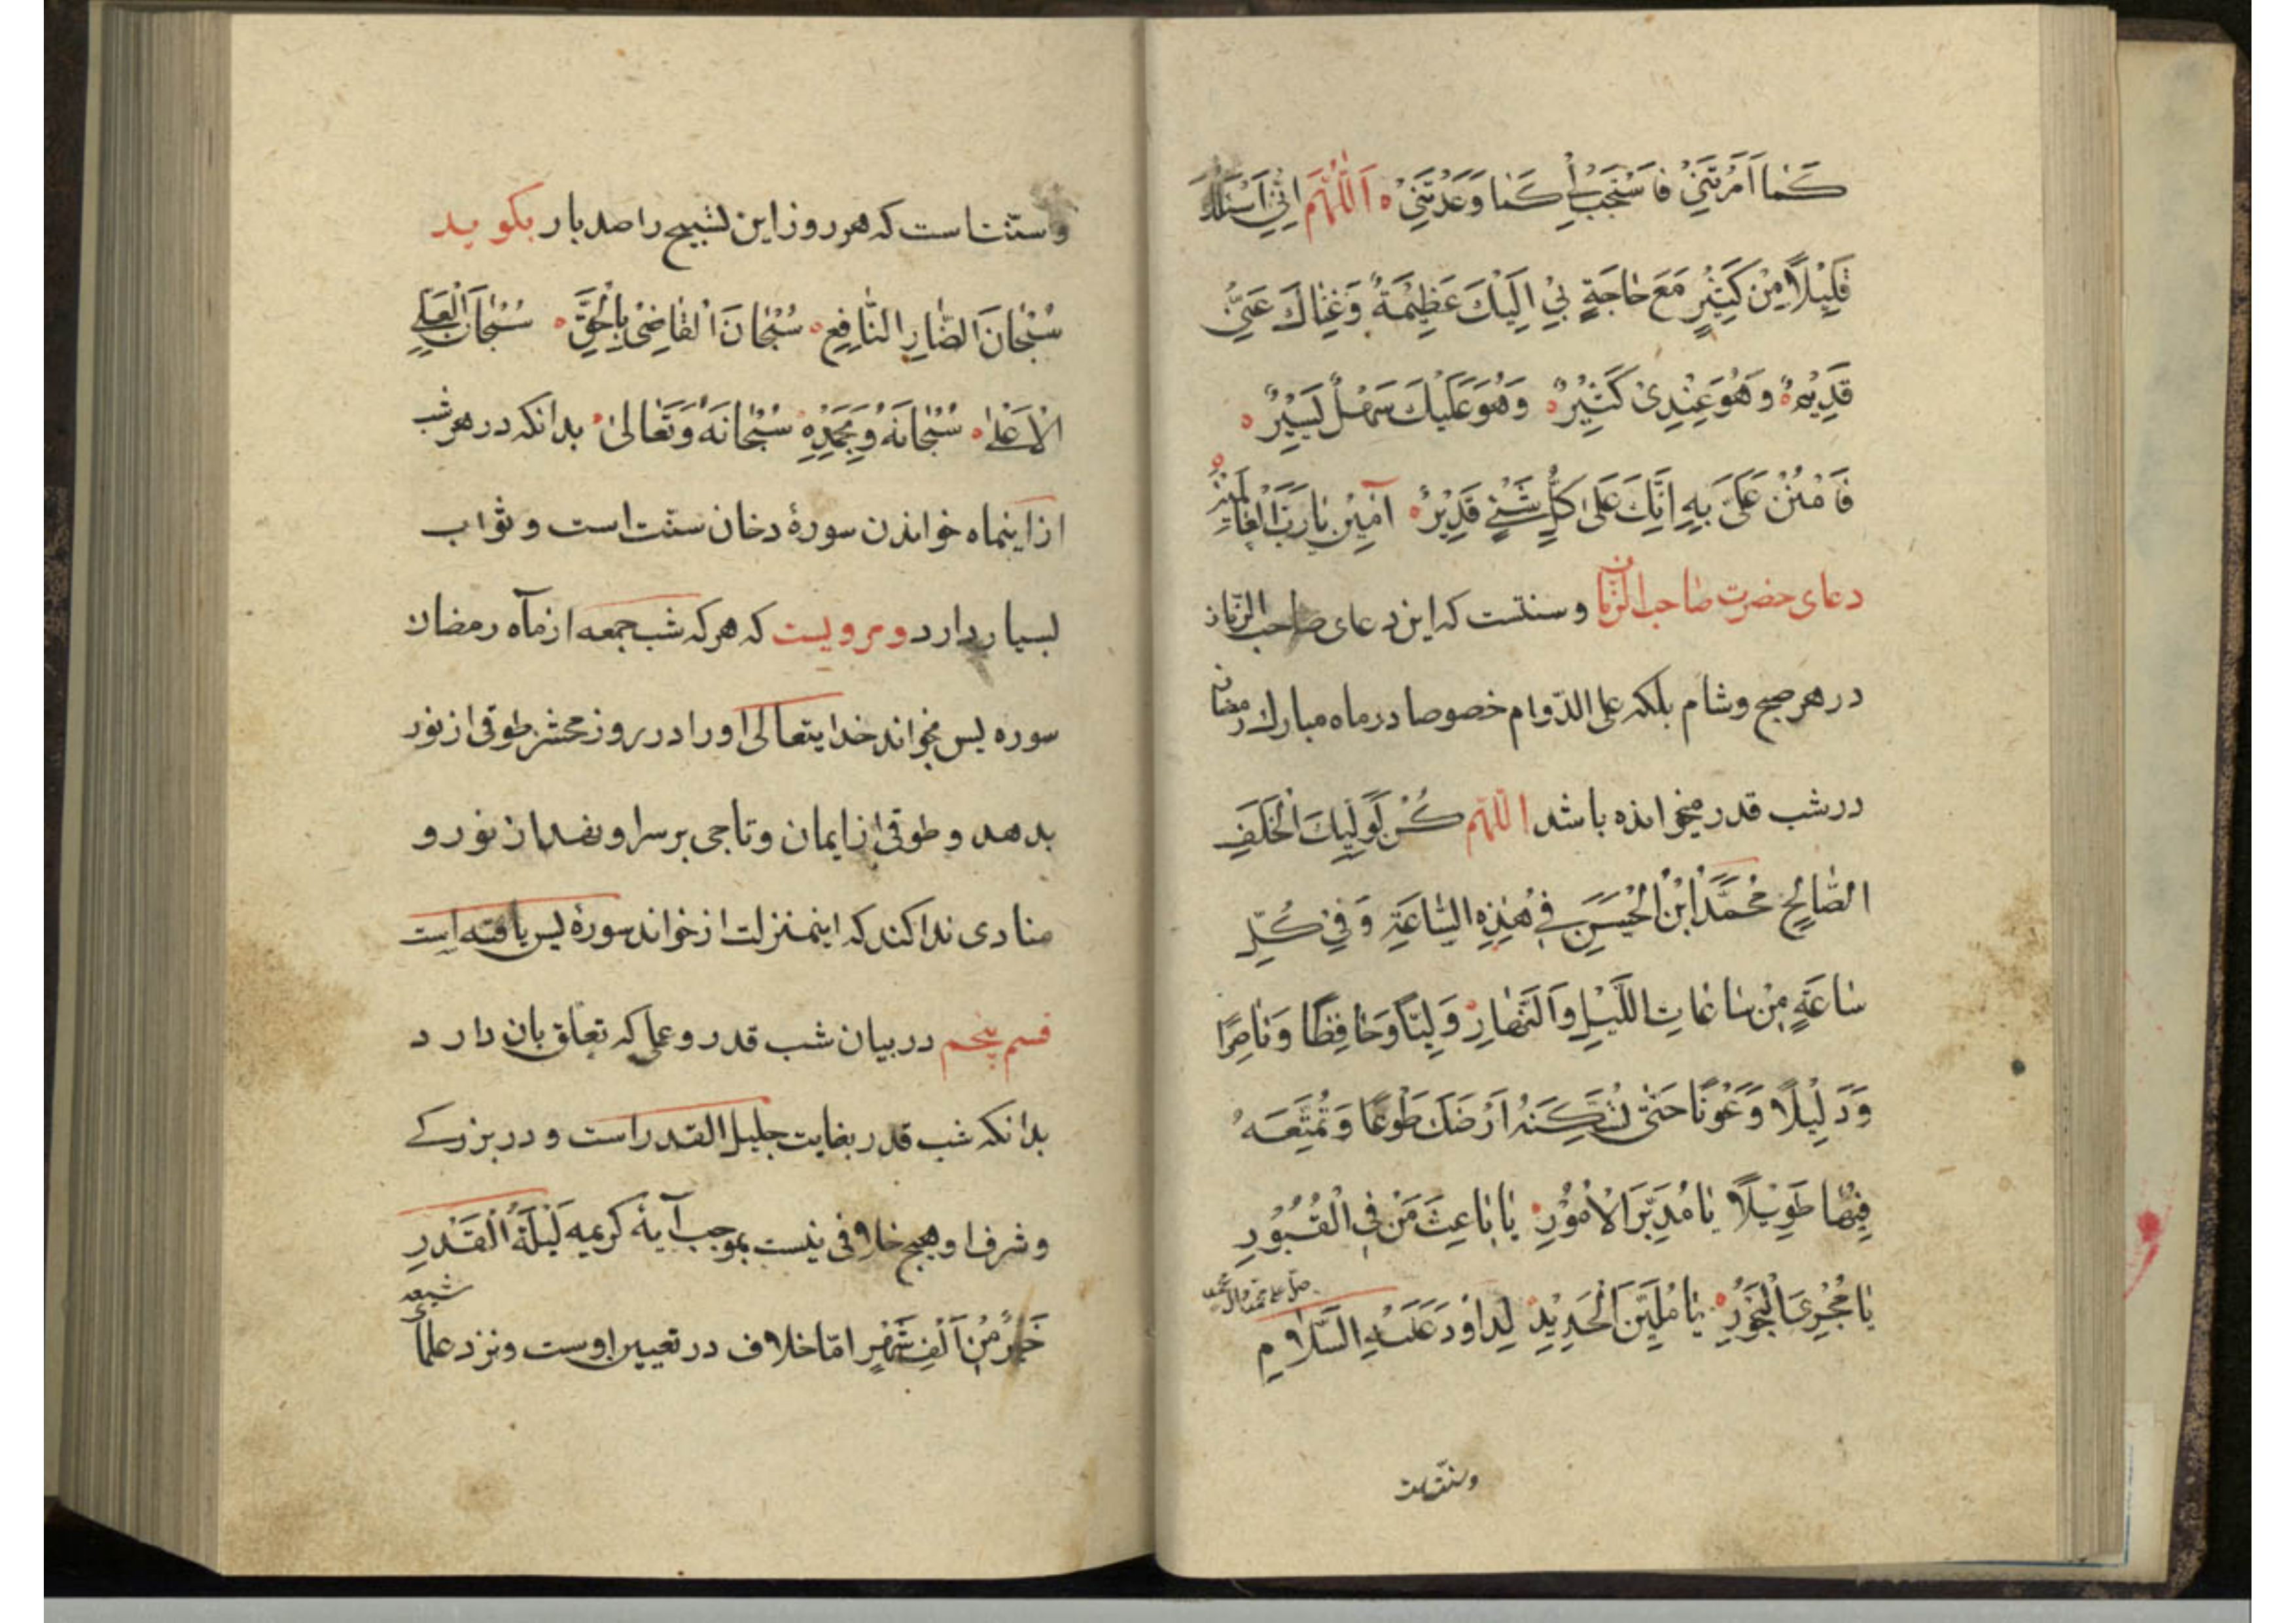 كَما اَمَرْتَنِيْ فَاسْتَجِبْ لِيْ كَما وَعَدْتَنِيْ ه اَللّٰهُمَّ اِنّيْ اَسْئَلُكَ
قَلِيْلًا مِنْ كَثِيْرٍ مَعَ حاجَةٍ بيْ اِلَيْكَ عَظِيْمَةٌ وَغِناكَ عَنْهُ
قَدِيْمٌ ه وَهُوَ عِنْدِيْ كَثِيْرٌ ه وَهُوَ عَلَيْكَ سَهْلٌ يَسِيْرٌ ه
فَامْنُنْ عَلَيَّ بِهِ اِنَّكَ عَلى كُلِّ شَيْءٍ قَدِيْرٌ ه آمِيْنَ يارَبَّ الْعالَمِيْنَ ه
دعای حضرت صاحب الزّمان و سنتست که این دعای صاحب الزّمان
در هر صبح و شام بلکه علی الدّوام خصوصا در ماه مبارک رمضان
در شب قدر میخوانده باشد اللّهمّ كُنْ لِوَلِيِّكَ الْخَلَفِ
الصّالِحِ مُحَمَّدَ ابْنَ الْحَسَنِ فِيْ هٰذِهِ السّاعَةِ وَفِيْ كُلِّ
ساعَةٍ مِنْ ساعاتِ اللَّيْلِ وَالنَّهارِ ه وَلِيًّا وَحافِظًا وَناصِرًا
وَدَلِيْلًا وَعَوْنًا حَتّى تُسْكِنَهُ اَرْضَكَ طَوْعًا وَتُمَتِّعَهُ
فِيْها طَوِيْلًا يا مُدَبِّرَ الْاُمُوْرِ ه يا باعِثَ مَنْ فِي الْقُبُوْرِ
يا مُجْرِيَ الْبُحُوْرِ ه يا مُلَيِّنَ الْحَدِيْدِ لِداوُدَ عَلَيْهِ السَّلامِ
صلّ علی محمّد وآل محمّد
و سنّت است
و سنّت است که هر روز این تسبیح را صد بار بکوید
سُبْحانَ الضّارِ النّافِعِ ه سُبْحانَ الْقاضِيْ بِالْحَقِّ ه سُبْحانَ الْعَلِيِّ
الْاَعْلىٰ ه سُبْحانَهُ وَبِحَمْدِهِ ه سُبْحانَهُ وَتَعالىٰ ه بدانکه در هر شب
از اینماه خواندن سورهٔ دخان سنّت است و ثواب
بسیار دارد و مرویست که هر که شب جمعه از ماه رمضان
سوره یس بخواند خدایتعالی او را در روز محشر طوقی از نور
بدهد و طوقی از ایمان و تاجی بر سر او نهد از نور و
منادی ندا کند که اینمنزلت از خواند سورهٔ یس یافته است
قسم پنجم در بیان شب قدر و عملی که تعلق بان دارد
بدانکه شب قدر بغایت جلیل القدر است و در بزرکے
و شرف او هیچ خلافی نیست بموجب آیهٔ کریمه لَيْلَةُ الْقَدْرِ
خَيْرٌ مِنْ اَلْفِ شَهْرٍ امّا خلاف در تعیین اوست و نزد علمای شیعه